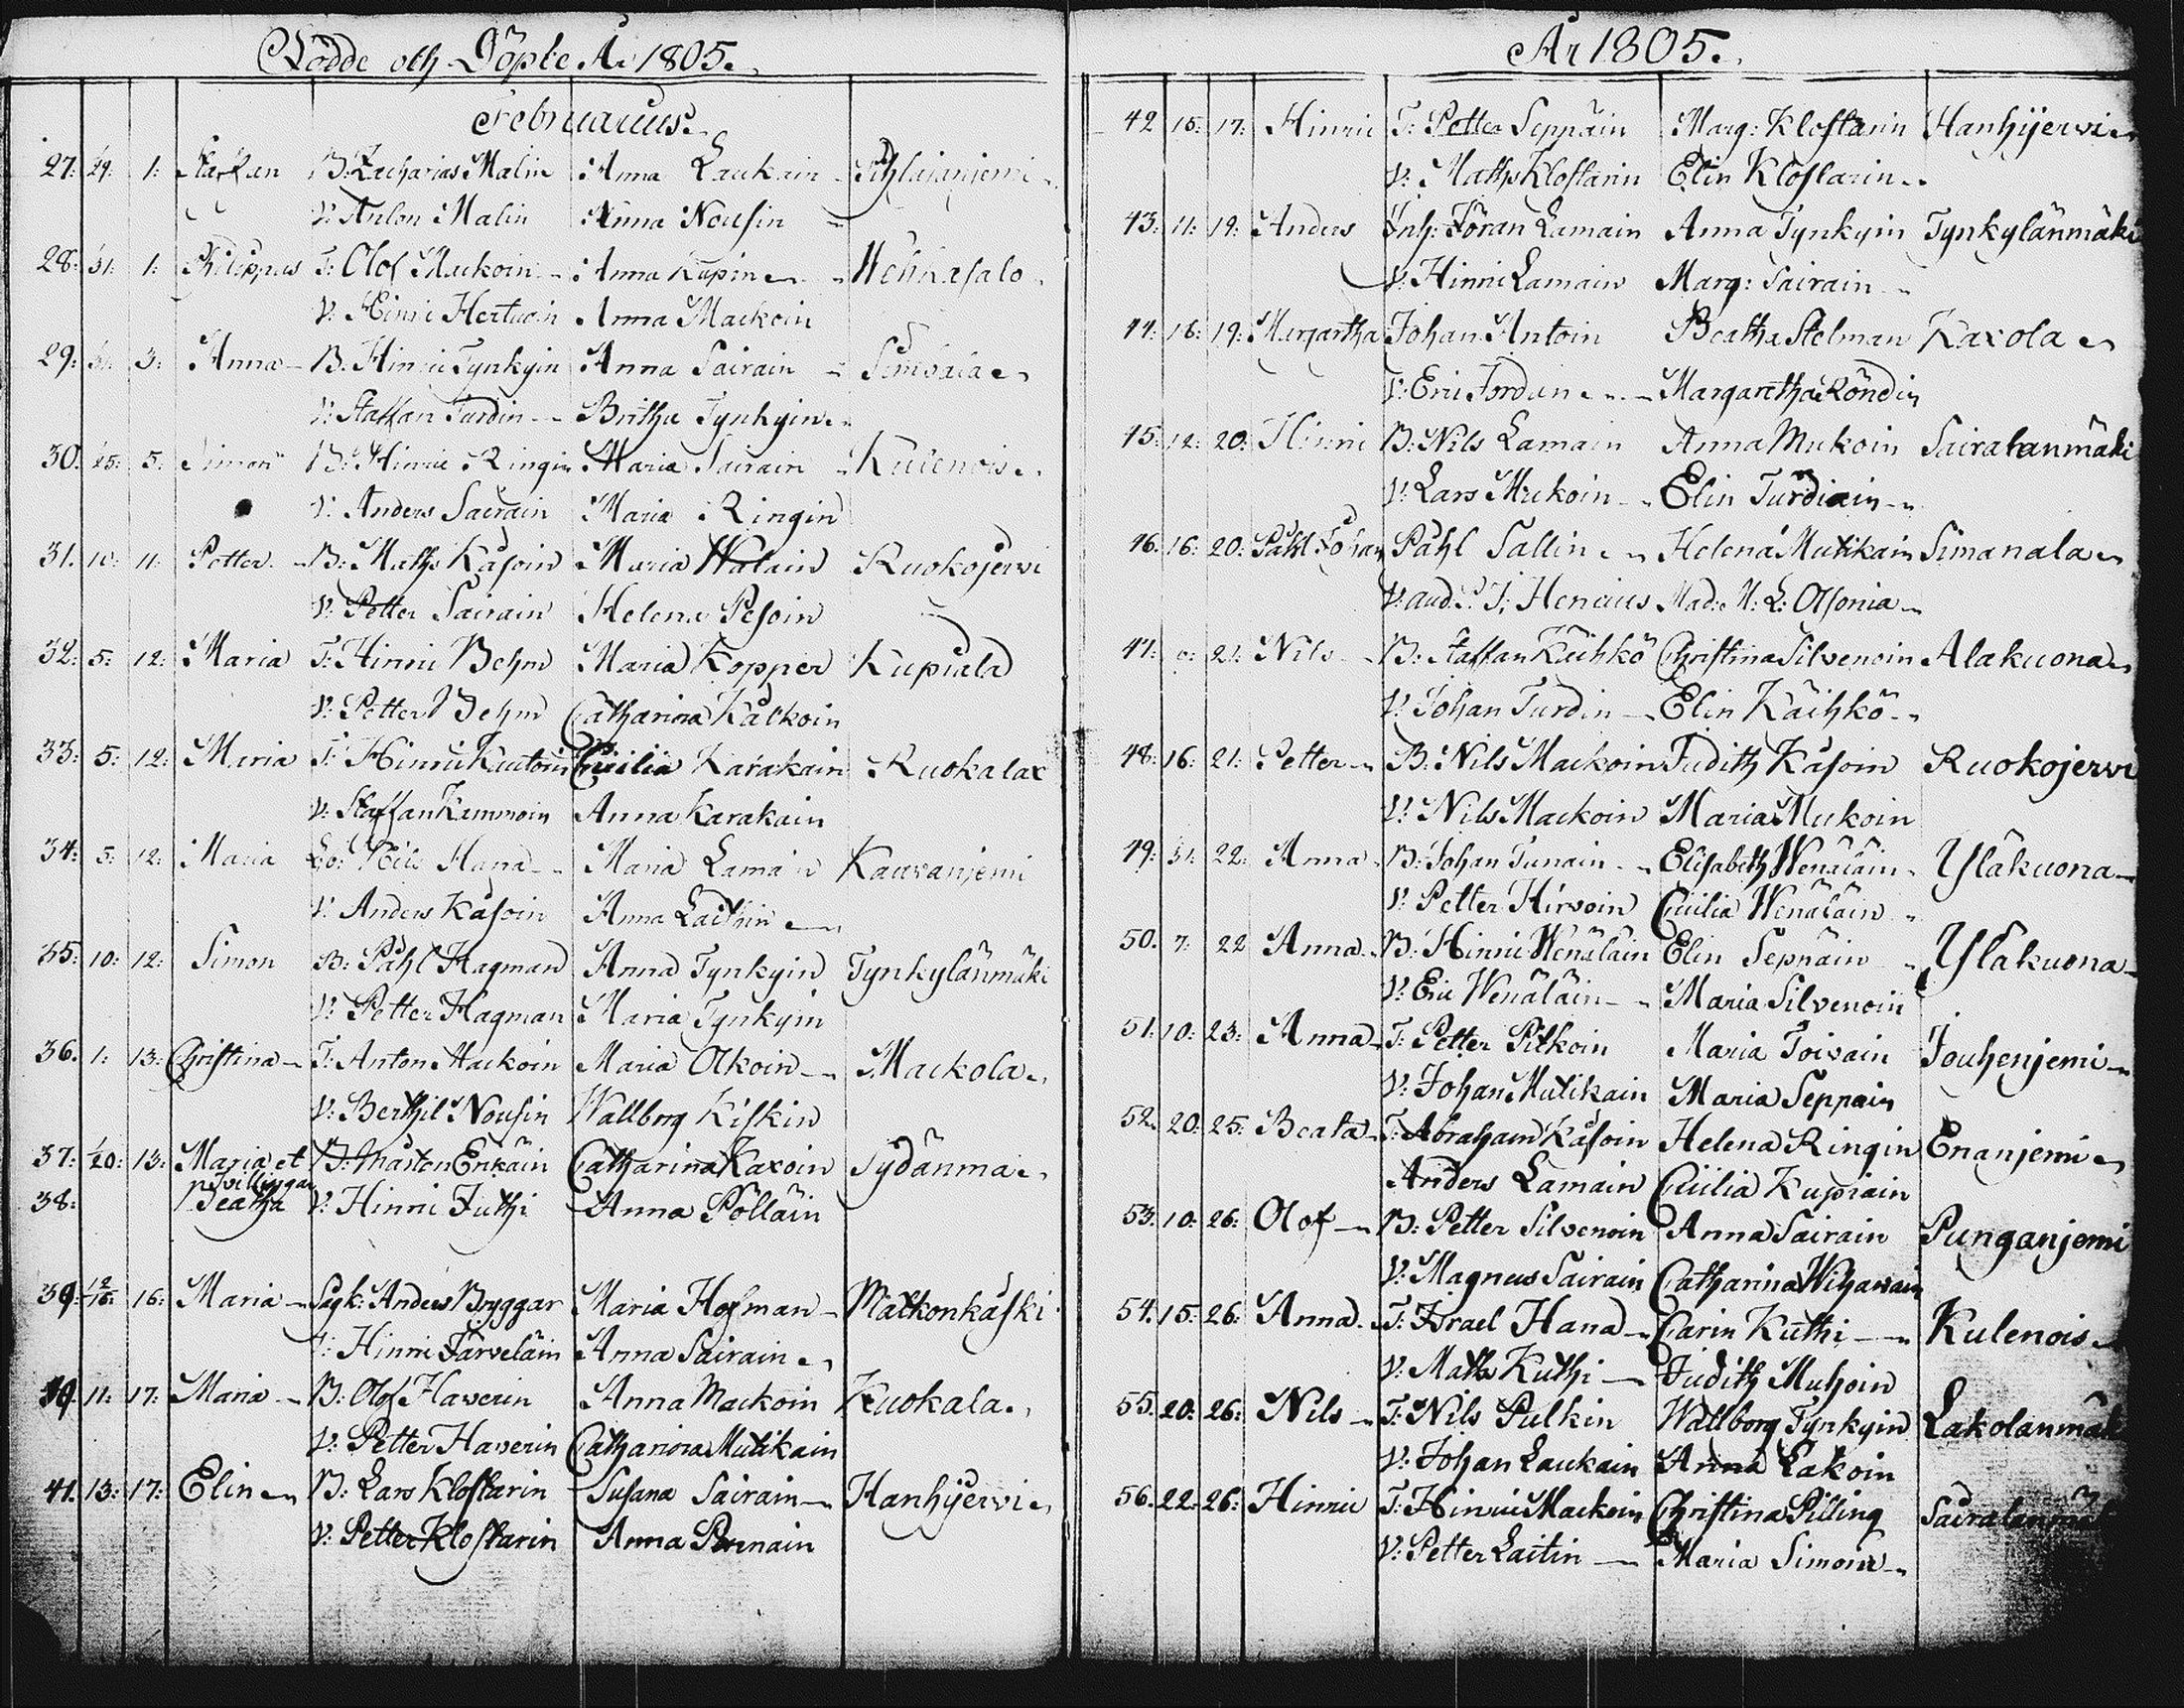 Födde och Döpte År 1805.
Februarius.
27: 29: 1: Staffan B: Zacharias Malin Anna Laukain Pihlajanjemi
V: Anton Malin Anna Nousin
28: 31: 1: Philippus T: Olof Muckoin Anna Kupin Wehkasalo
V: Hinric Hertuoin Anna Mackoin
29: 31: 3: Anna B: Hinric Tynkyin Anna Sairain Simbala
V: Staffan Turdin Britha Tynkyin
30: 25: 5: Simon B: Hinric Ringin Maria Sairain Kulenois
V: Anders Sairain Maria Ringin
31. 10: 11: Petter B: Maths Kåsoin Maria Walain Ruokojervi
V: Petter Sairain Helena Pesoin
32: 5: 12: Maria T: Hinric Behm Maria Kopper Kupiala
V: Petter Behm Catharina Kålkoin
33: 5: 12: Maria T: Hinric Kautoin Cicilia Karakain Ruokalax
V: Staffan Kemmoin Anna Karakain
34: 5: 12: Maria Lo: Nils Hana Maria Lamain Kauvanjemi
V: Anders Kåsoin Anna Laitin
35: 10: 12: Simon B: Påhl Hagman Anna Tynkyin Tynkylänmäki
V: Petter Hagman Maria Tynkyin
36. 1: 13: Christina T: Anton Mackoin Maria Olkoin Mackola
V: Berthil Nousin Wallborg Kiskin
37: 20: 13: Maria et B: Mårten Enkäin Catharina Kaxoin Sydänma
tvillingar
38: Beatha V: Hinric Juthi Anna Pölläin
39: 12/16 16: Maria Sysk: Anders Bryggar Maria Hofman Matkonkåski
V: Hinric Järveläin Anna Sairain
40. 11: 17: Maria B: Olof Haverin Anna Mackoin Kuokala
V: Petter Haverin Catharina Mutikain
41. 13: 17: Elin B: Lars Klostarin Susana Sairain Hanhijervi
V: Petter Klostarin Anna Pennain
År 1805.
42 15: 17: Hinric T: Petter Seppäin Marg: Klostarin Hanhijervi
V: Maths Klostarin Elin Klostarin
43: 11: 19: Anders Inh: Jöran Lamain Anna Tynkyin Tynkylänmäki
V: Hinric Lamain Marg: Sairain
44: 18: 19: Margartha Johan Antoin Beatha Stelman Kaxola
V: Eric Jordan Margaretha Röndin
45: 12: 20: Hinric B: Nils Lamain Anna Mukoin Sairalanmäki
V: Lars Mukoin Elin Turdiain
46. 16: 20: Påhl Johan Påhl Sallin Helena Mutikain Simanala
V: aud. S. J: Heneius Mad: M: L: Olsonia
47: 21: Nils B: Staffan Käihkö Christina Silvenoin Alakuona
V: Johan Turdin Elin Käihkö
48: 16: 21: Petter B: Nils Mackoin Judith Kåsoin Ruokojervi
V: Nils Mackoin Maria Mukoin
49: 31: 22: Anna B: Johan Tunain Elisabeth Wenäläin Yläkuona
V: Petter Hirvoin Cicilia Wenäläin
50. 7: 22 Anna B: Hinric Wenäläin Elin Sepnäin Yläkuona
V: Eric Wenäläin Maria Silvenoin
51: 10: 23: Anna T: Petter Pitkoin Maria Toivain Jouhenjemi
V: Johan Mutikain Maria Seppain
52. 20 25: Beata T: Abraham Kåsoin Helena Ringin Enanjemi
Anders Lamain Cicilia Kupiain
53. 10: 26: Olof B: Petter Silvenoin Anna Sairain Punganjemi
V: Magnus Sairain Catharina Wihavain
54. 15: 26: Anna T: Israel Hana Carin Kuthi Kulenois
V: Maths Kuthi Judith Muhoin
55. 20: 26: Nils T: Nils Pulkin Wallborg Tynkyin Lakolanmäk
V: Johan Laukain Anna Lakoin
56. 22: 26: Hinric T: Hinric Mackoin Christina Pilling Sairalanmäk
V: Petter Laitin Maria Simona